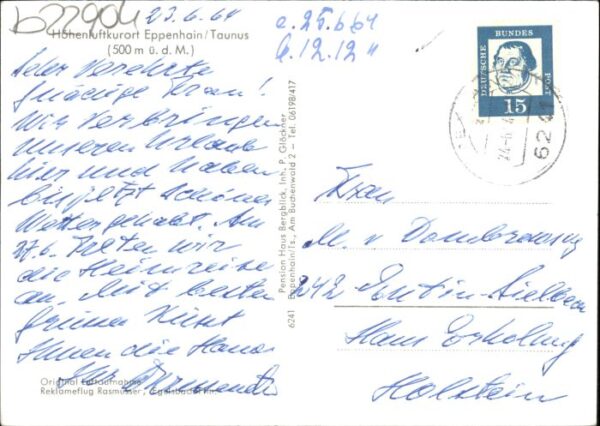 b22904
23.6.64
e. 25.6.64
b. 12.12 "
Höhenluftkurort Eppenhain/Taunus
(500 m ü. d. M.)
Verehrte
gnädige Frau!
Wir verbringen
unseren Urlaub
hier und haben
bis jetzt schönes
Wetter gehabt. Am
27.6. treten wir
die Heimreise
an. Mit besten
Grüßen küßt
Ihnen die Hand
Ihr
Original Luftaufnahme
Reklameflug Rasmusser, Egelsbach
Pension Haus Bergblick, Inh. P. Glöckner
6241 Eppenhain/Ts., Am Buchenwald 2 - Tel. 06198/417
DEUTSCHE BUNDES POST
15
24.-6.
6241
Frau
M. v. Dombrowsky
242 Eutin-Sielbeck
Haus Erholung
Holstein